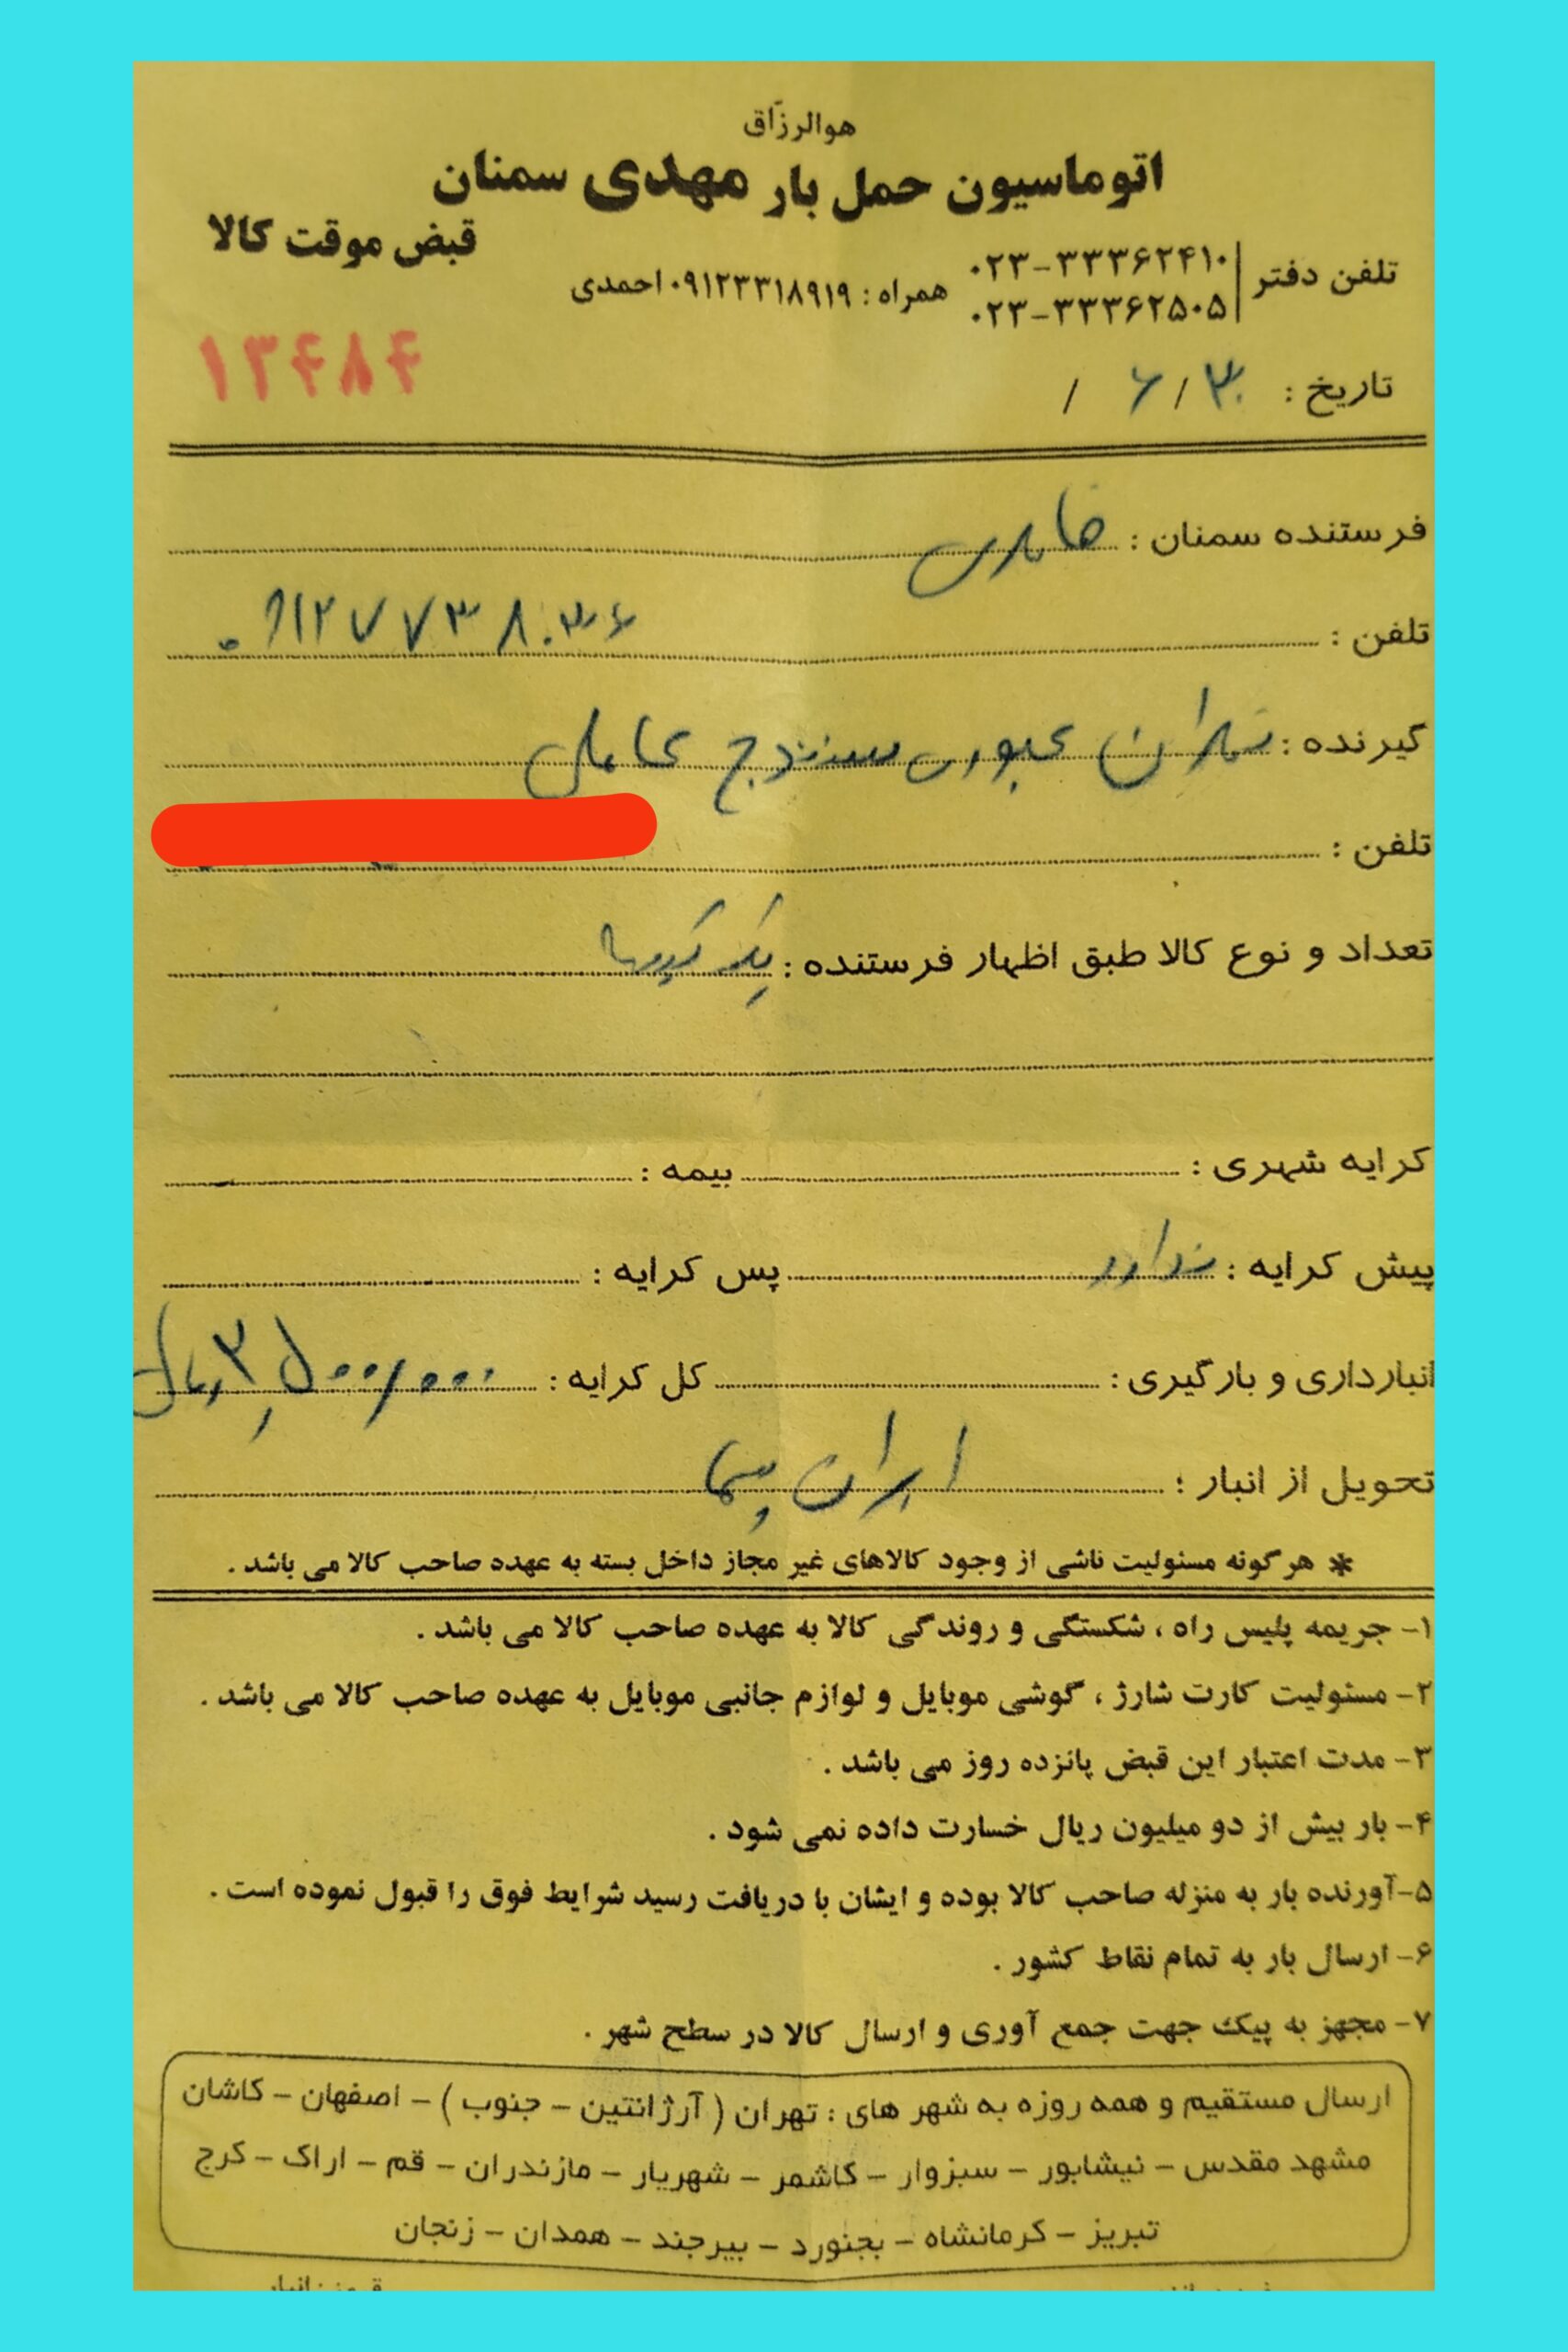 هوالرزّاق
اتوماسیون حمل بار مهدی سمنان
قبض موقت کالا
تلفن دفتر ۰۲۳-۳۳۳۶۲۴۱۰
۰۲۳-۳۳۳۶۲۵۰۵
همراه : ۰۹۱۲۳۳۱۸۹۱۹ احمدی
۱۳۴۸۴
تاریخ : ۳۰/۶/
فرستنده سمنان :
تلفن : ۰۹۱۲۷۷۳۸۰۳۶
گیرنده : تهران عبوری سنندج عاملی
تلفن :
تعداد و نوع کالا طبق اظهار فرستنده : یک
کرایه شهری : بیمه :
پیش کرایه : ندارد پس کرایه :
انبارداری و بارگیری : کل کرایه : ۳,۵۰۰,۰۰۰ ریال
تحویل از انبار : ایران پیما
* هرگونه مسئولیت ناشی از وجود کالاهای غیر مجاز داخل بسته به عهده صاحب کالا می باشد .
۱- جریمه پلیس راه ، شکستگی و روندگی کالا به عهده صاحب کالا می باشد .
۲- مسئولیت کارت شارژ ، گوشی موبایل و لوازم جانبی موبایل به عهده صاحب کالا می باشد .
۳- مدت اعتبار این قبض پانزده روز می باشد .
۴- بار بیش از دو میلیون ریال خسارت داده نمی شود .
۵-آورنده بار به منزله صاحب کالا بوده و ایشان با دریافت رسید شرایط فوق را قبول نموده است .
۶- ارسال بار به تمام نقاط کشور .
۷- مجهز به پیک جهت جمع آوری و ارسال کالا در سطح شهر .
ارسال مستقیم و همه روزه به شهر های : تهران ( آرژانتین - جنوب ) - اصفهان - کاشان
مشهد مقدس - نیشابور - سبزوار - کاشمر - شهریار - مازندران - قم - اراک - کرج
تبریز - کرمانشاه - بجنورد - بیرجند - همدان - زنجان